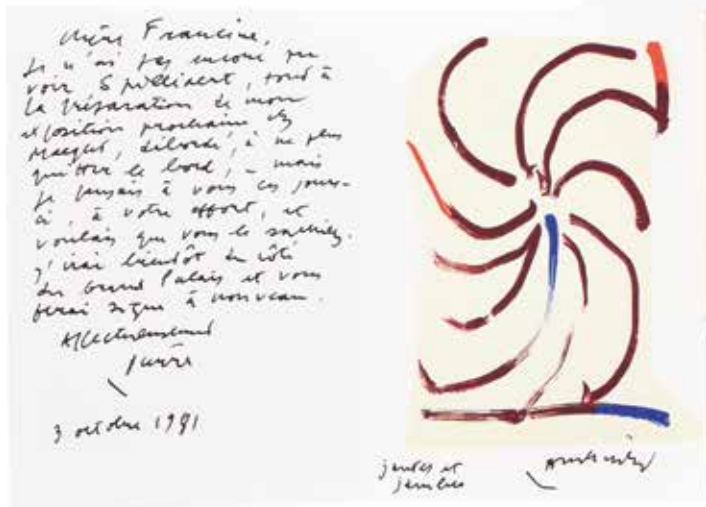 chère Francine,
Je n'ai pas encore pu
voir Spilliaert, tout à
la préparation de mon
exposition prochaine chez
Maeght, débordé, à ne plus
quitter le bord, – mais
je pensais à vous ces jours-
ci, à votre effort, et
voulais que vous le sachiez.
J'irai bientôt du côté
du Grand Palais et vous
ferai signe à nouveau.
Affectueusement
Pierre
3 octobre 1981
jantes et
jambes
Alechinsky